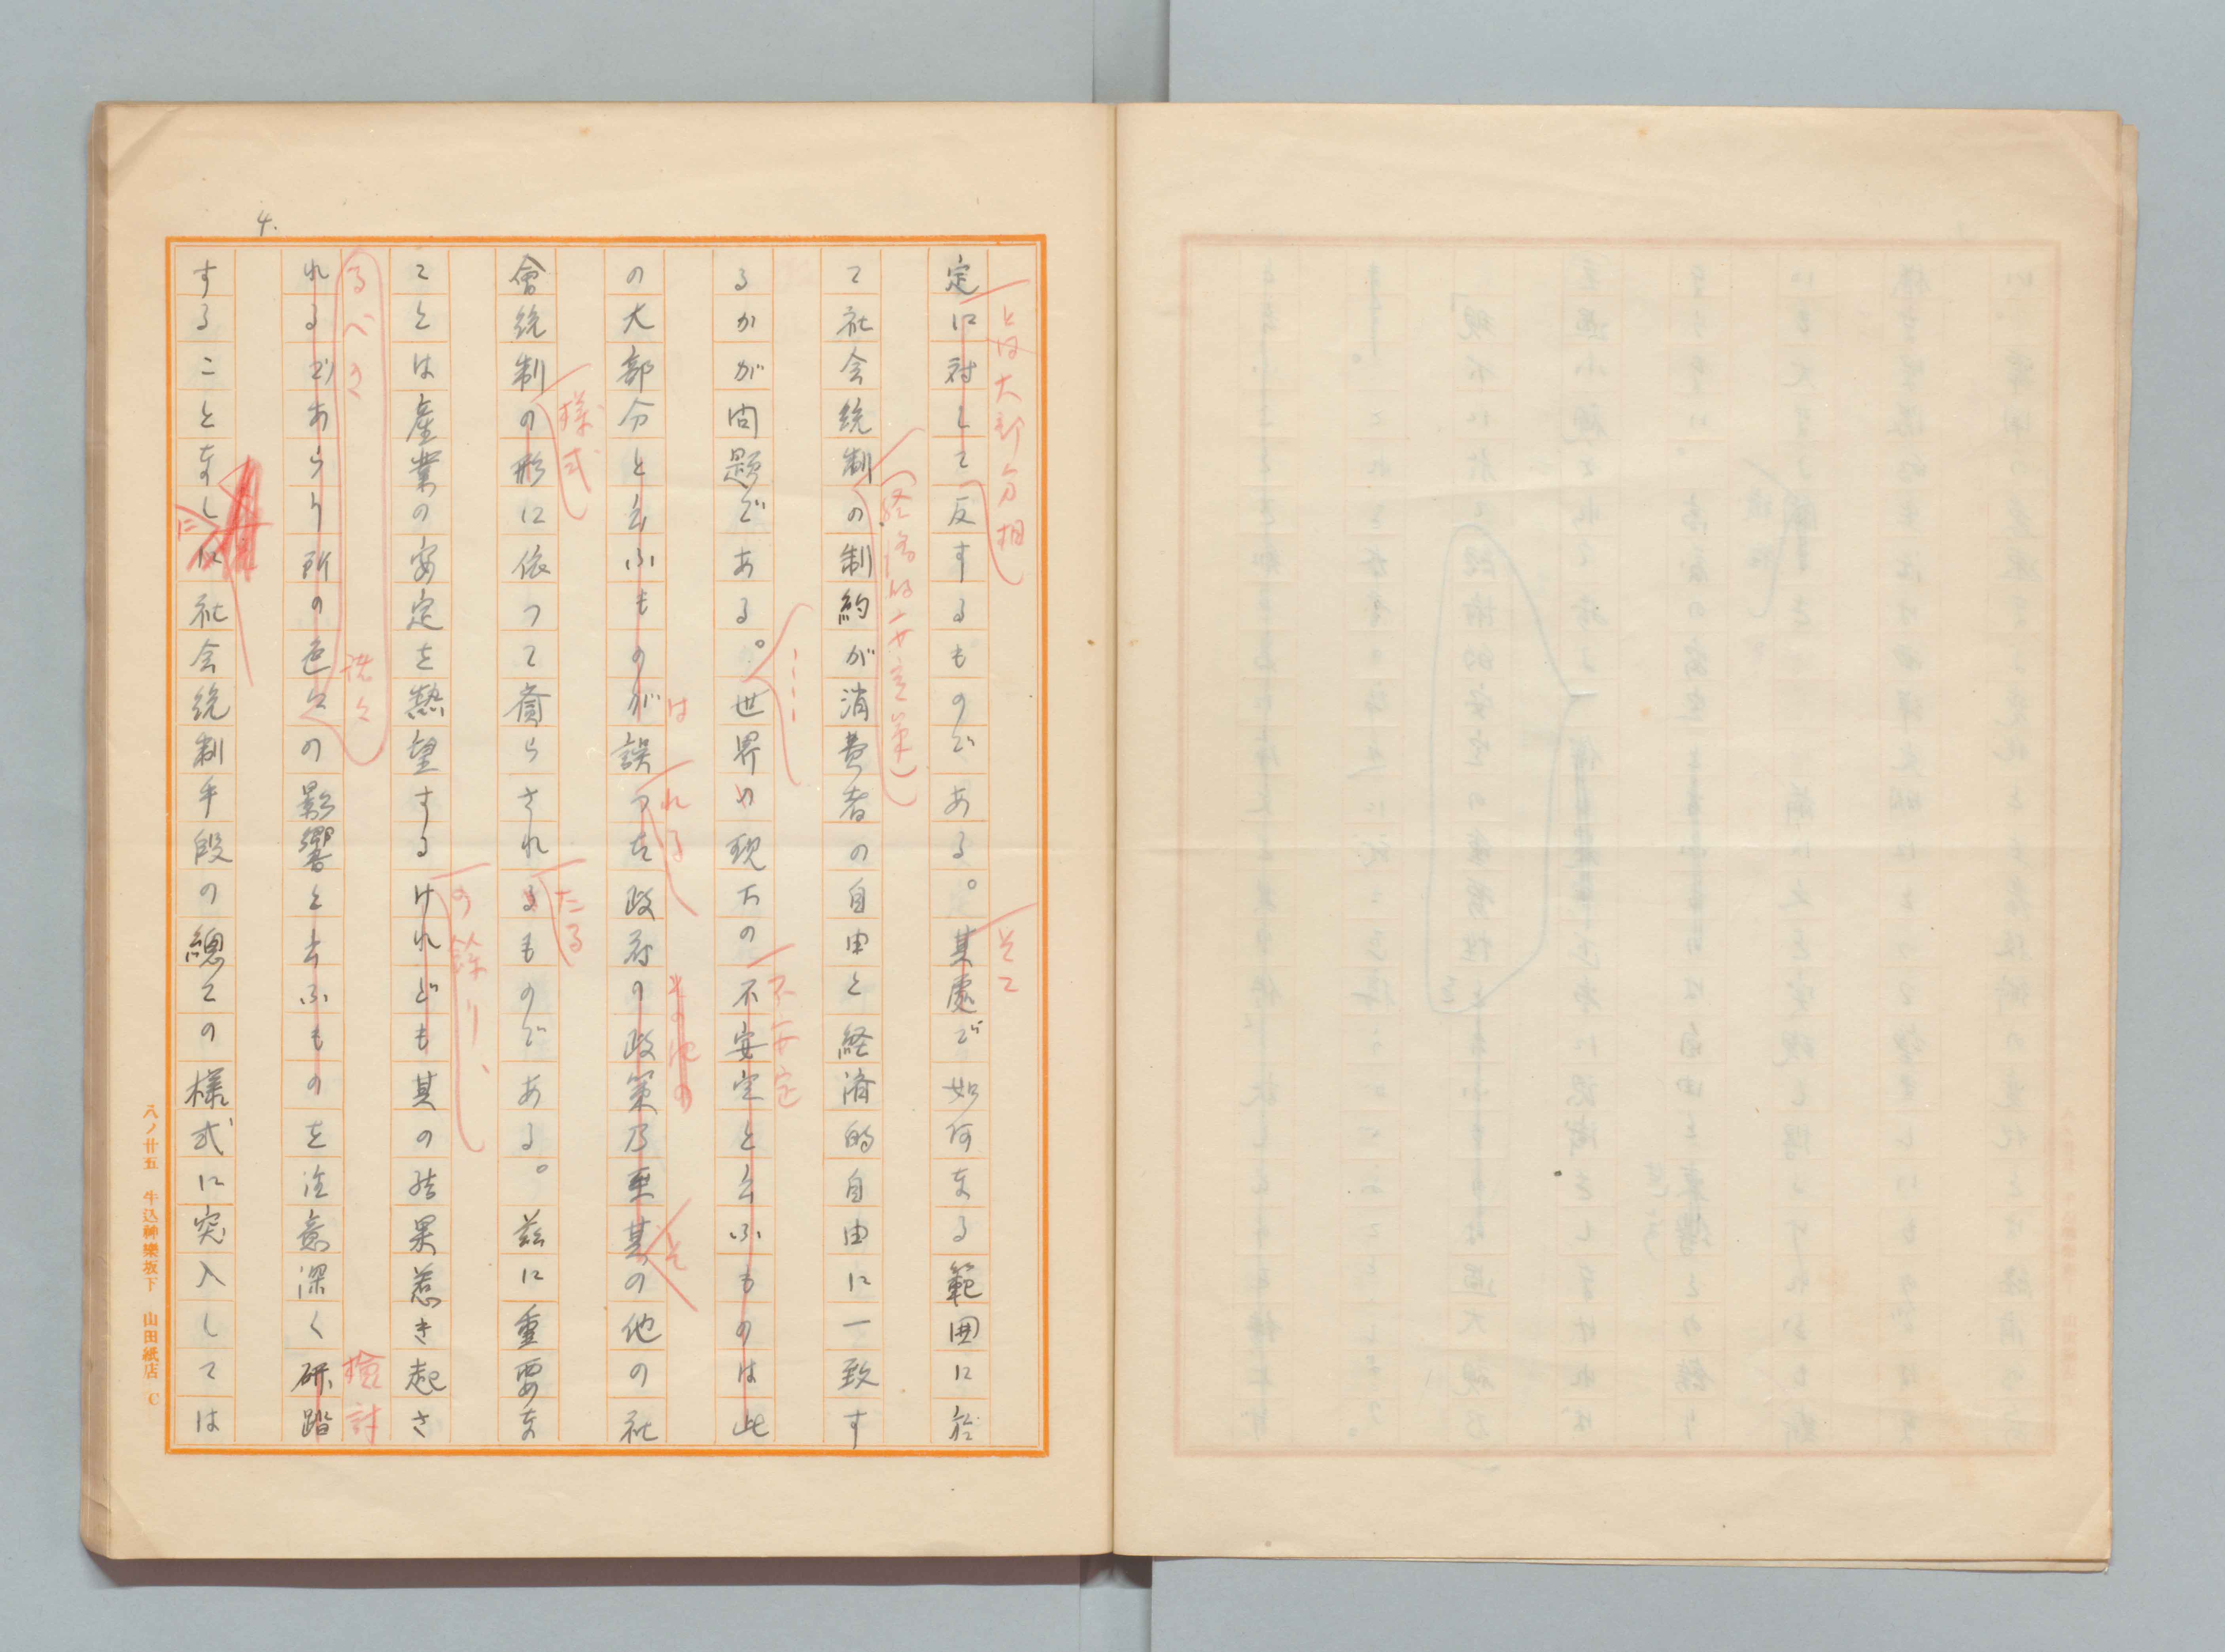 4.
とは大部分相
そこ
定に対して反するものである。其處で如何なる範囲に於
(経済的安定策)
て社会統制の制約が消費者の自由と経済的自由に一致す
不安定
るかが問題である。世界の現在の不安定と云ふものは此
は
れる
その他の
そ
の大部分と云ふものが誤つた政府の政策乃至其の他の社
様式
たる
會統制の形に依つて齎らされるものである。茲に重要な
の餘り、
ことは産業の安定を熱望するけれども其の結果惹き起さ
るべき
諸々
検討
れるであらう所の色々の影響と云ふものを注意深く研踏
に
することなし仅社会統制手段の總ての様式に突入しては
八ノ廿五 牛込神樂坂下 山田紙店 C